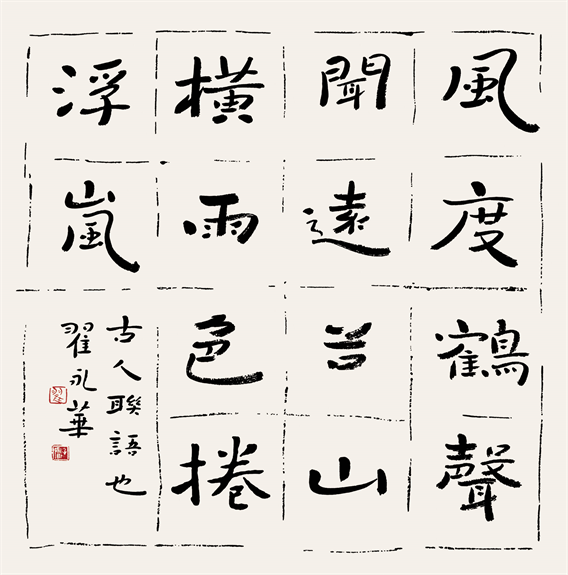 風度鶴聲
聞遠谷山
橫雨色捲
浮嵐
古人聯語也
翟永華